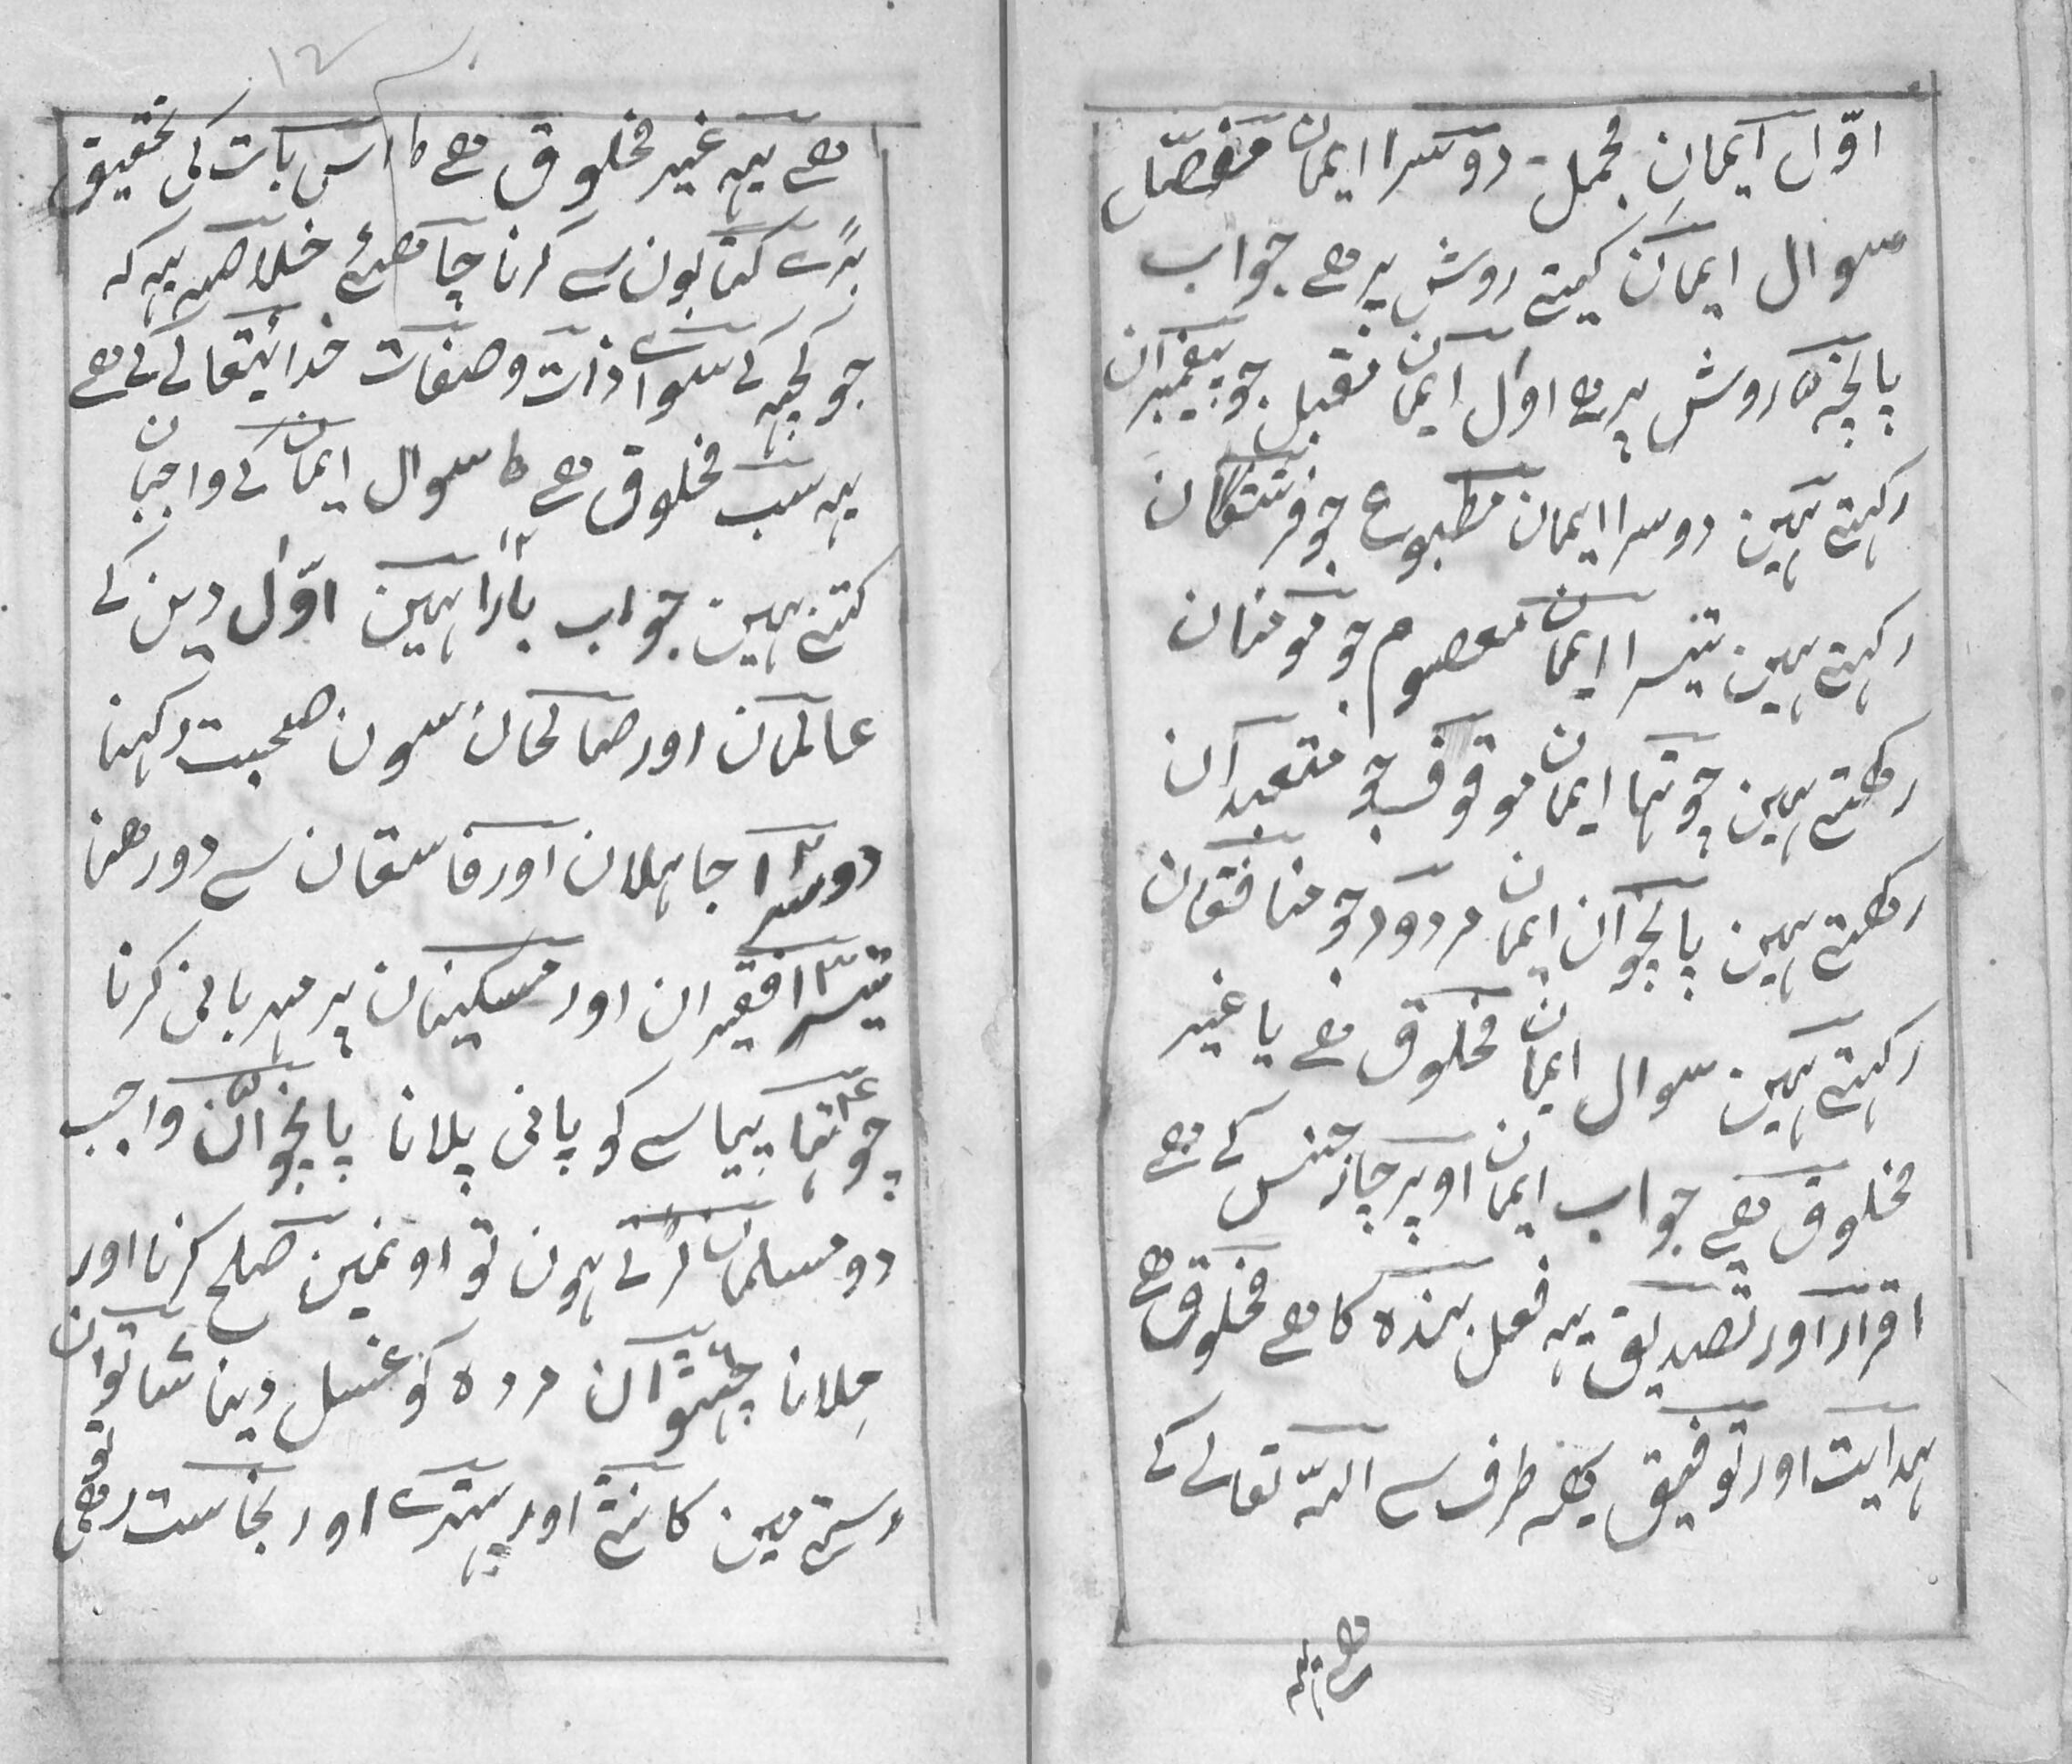 اوّل ایمانِ مجمل۔ دوسرا ایمان مفصّل
سوال ایمان کیتے روش پر ھے جواب
پانچہ ۵ روش پر ھے اول ایمان مقبل جو پیغمبران
رکہتے ہین دوسرا ایمان مطبوع جو فرشتگان
رکہتے ہین تیسرا ایمان معصوم جو مومنان
رکھتے ہین چوتہا ایمان موقوف جو متعبدان
رکھتے ہین پانچوان ایمان مردود جو منافقان
رکہتے ہین سوال ایمان مخلوق ھے یا غیر
مخلوق ھے جواب ایمان اوپر چار جنس کے ھے
اقرار اور تصدیق یہہ فعل بندہ کا ھے مخلوق ھے
ہدایت اور توفیق یھہ طرف سے اللہ تعالے کے
ھے یہہ
۱۲
ھے یہہ غیر مخلوق ھے ۵ اس بات کی تحقیق
بڑے کتابون سے کرنا چاھئے خلاصہ یہہ کہ
جو کچہہ کے سواے ذات و صفات خدائیتعالے کے ھے
یہہ سب مخلوق ھے ۵ سوال ایمان کے واجبان
کتنے ہین جواب بارا ۱۲ ہین اوّل ۱ دین کے
عالمان اور صالحان سون صحبت رکہنا
دوسرا ۲ جاہلان اور فاسقان سے دور ھنا
تیسرا ۳ فقیران اور مسکینان پر مہربانی کرنا
چوتہا ۴ پیاسے کو پانی پلانا پانچوان ۵ واجب
دو مسلمان لڑتے ہون تو اونمین صلح کرنا اور
مِلانا چہٹوان ۶ مردہ کو غسل دینا ساتوان ۷
رستے مین کانٹے اور پہترے اور نجاست رھی تو